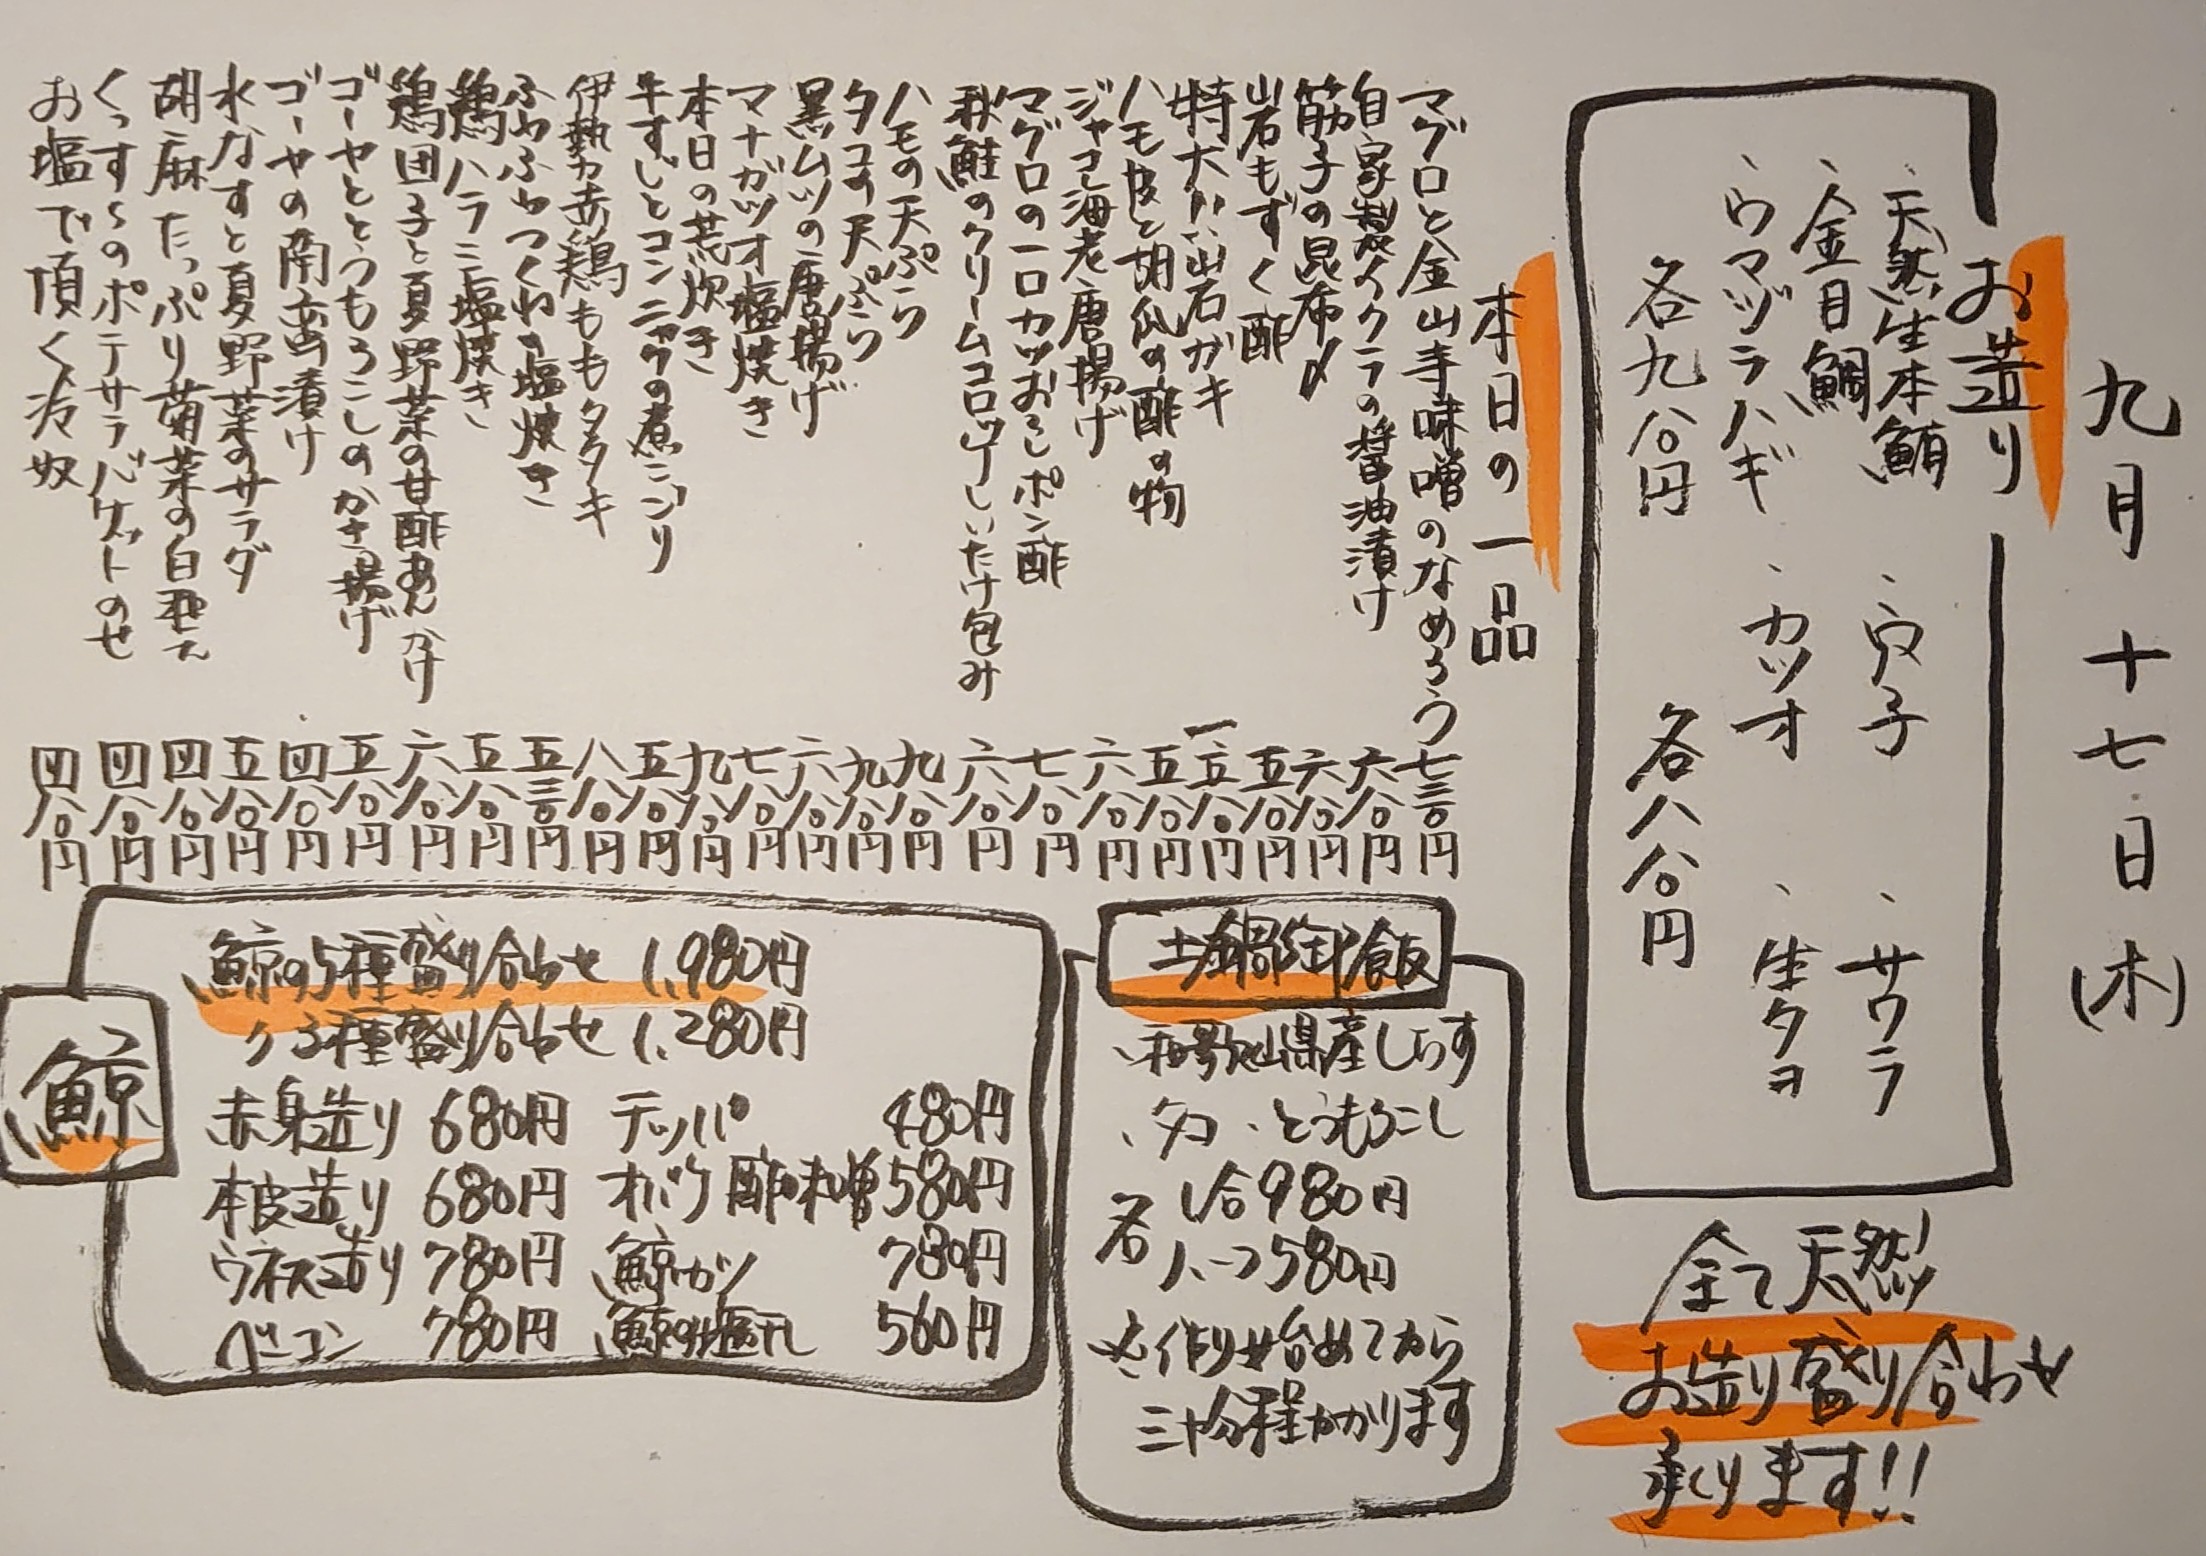 九月十七日(木)
お造り
・天然生本鮪 ・穴子 ・サワラ
・金目鯛 ・カツオ ・生タコ
・ウマヅラハギ
各九八〇円 各八八〇円
全て天然
お造り盛り合わせ
承ります!!
本日の一品
マグロと金山寺味噌のなめろう 七三〇円
自家製イクラの醤油漬け 六八〇円
筋子の昆布〆 六八〇円
岩もずく酢 五八〇円
特大 岩ガキ 一、五八〇円
ハモ皮と胡瓜の酢の物 五八〇円
ジャコ海老唐揚げ 六八〇円
マグロの一口カツおろしポン酢 七八〇円
秋鮭のクリームコロッケしいたけ包み 六八〇円
ハモの天ぷら 九八〇円
タコの天ぷら 九八〇円
黒ムツの唐揚げ 六八〇円
マナガツオ塩焼き 七八〇円
本日の荒炊き 九八〇円
牛すじとコンニャクの煮こごり 五八〇円
伊勢赤鶏ももタタキ 八八〇円
ふわふわつくねの塩焼き 五三〇円
鶏ハラミ塩焼き 五八〇円
鶏団子と夏野菜の甘酢あんかけ 六八〇円
ゴーヤととうもろこしのかき揚げ 五八〇円
ゴーヤの南蛮漬け 四八〇円
水なすと夏野菜のサラダ 五八〇円
胡麻たっぷり菊菜の白和え 四八〇円
くっすんのポテサラバゲットのせ 四八〇円
お塩で頂く冷奴 四八〇円
土鍋御飯
・和歌山県産しらす
・タコ ・とうもろこし
各 1合 980円
ハーフ 580円
※作り始めてから
三十分程かかります
鯨
鯨の5種盛り合わせ 1,980円
〃 3種盛り合わせ 1,280円
赤身造り 680円 テッパ 480円
本皮造り 680円 オバケ酢味噌 580円
ウネス造り 780円 鯨カツ 780円
ベーコン 780円 鯨の塩干し 560円